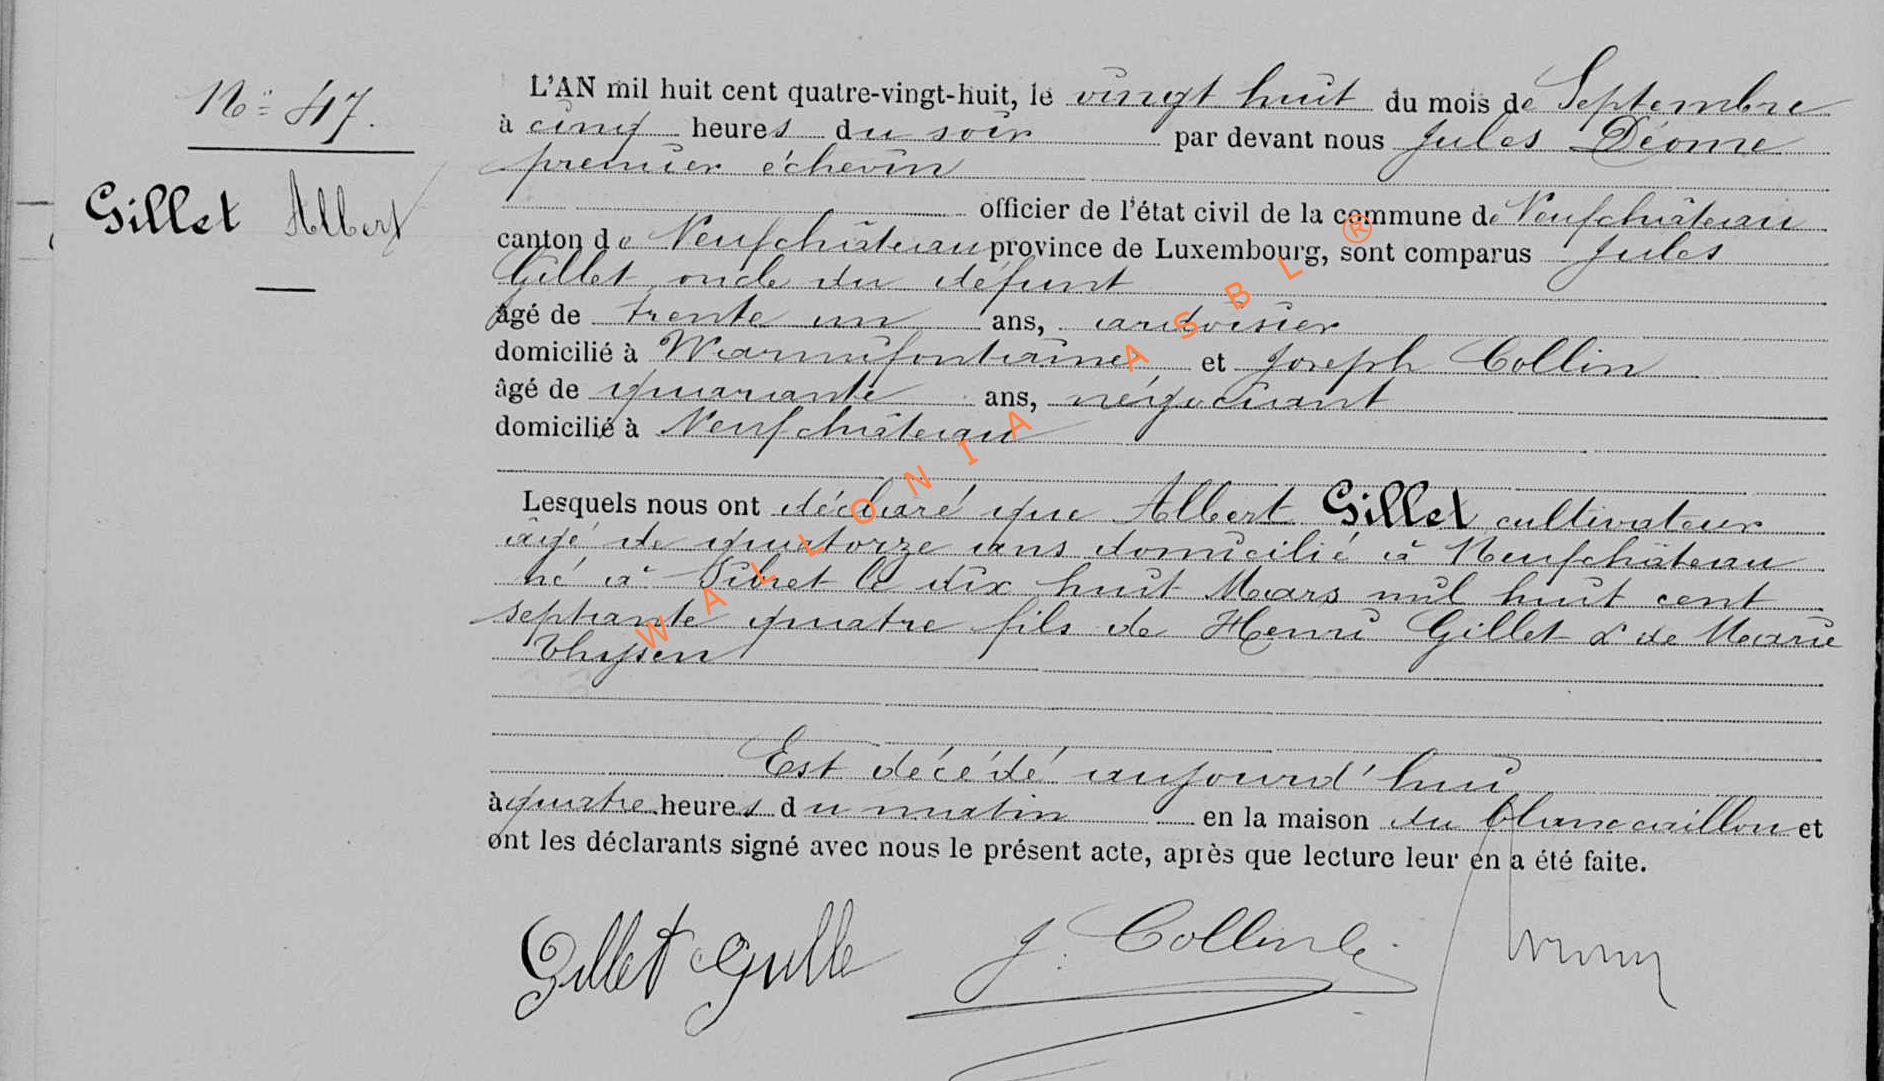 No 47.
Gillet Albert
L'AN mil huit cent quatre-vingt-huit, le vingt huit du mois de Septembre
à cinq heures du soir par devant nous Jules Déome
premier échevin
officier de l'état civil de la commune de Neufchâteau
canton de Neufchâteau province de Luxembourg, sont comparus Jules
Gillet oncle du défunt
âgé de trente un ans, ardoisier
domicilié à Warmifontaine et Joseph Collin
âgé de quarante ans, négociant
domicilié à Neufchâteau
Lesquels nous ont déclaré que Albert Gillet cultivateur
âgé de quatorze ans domicilié à Neufchâteau
né à Sibret le dix huit Mars mil huit cent
septante quatre fils de Henri Gillet & de Marie
Thysen
Est décédé aujourd'hui
à quatre heures du matin en la maison du blanc caillou et
ont les déclarants signé avec nous le présent acte, après que lecture leur en a été faite.
Gillet Jullе J. Collin
WALLONIA ASBL ®